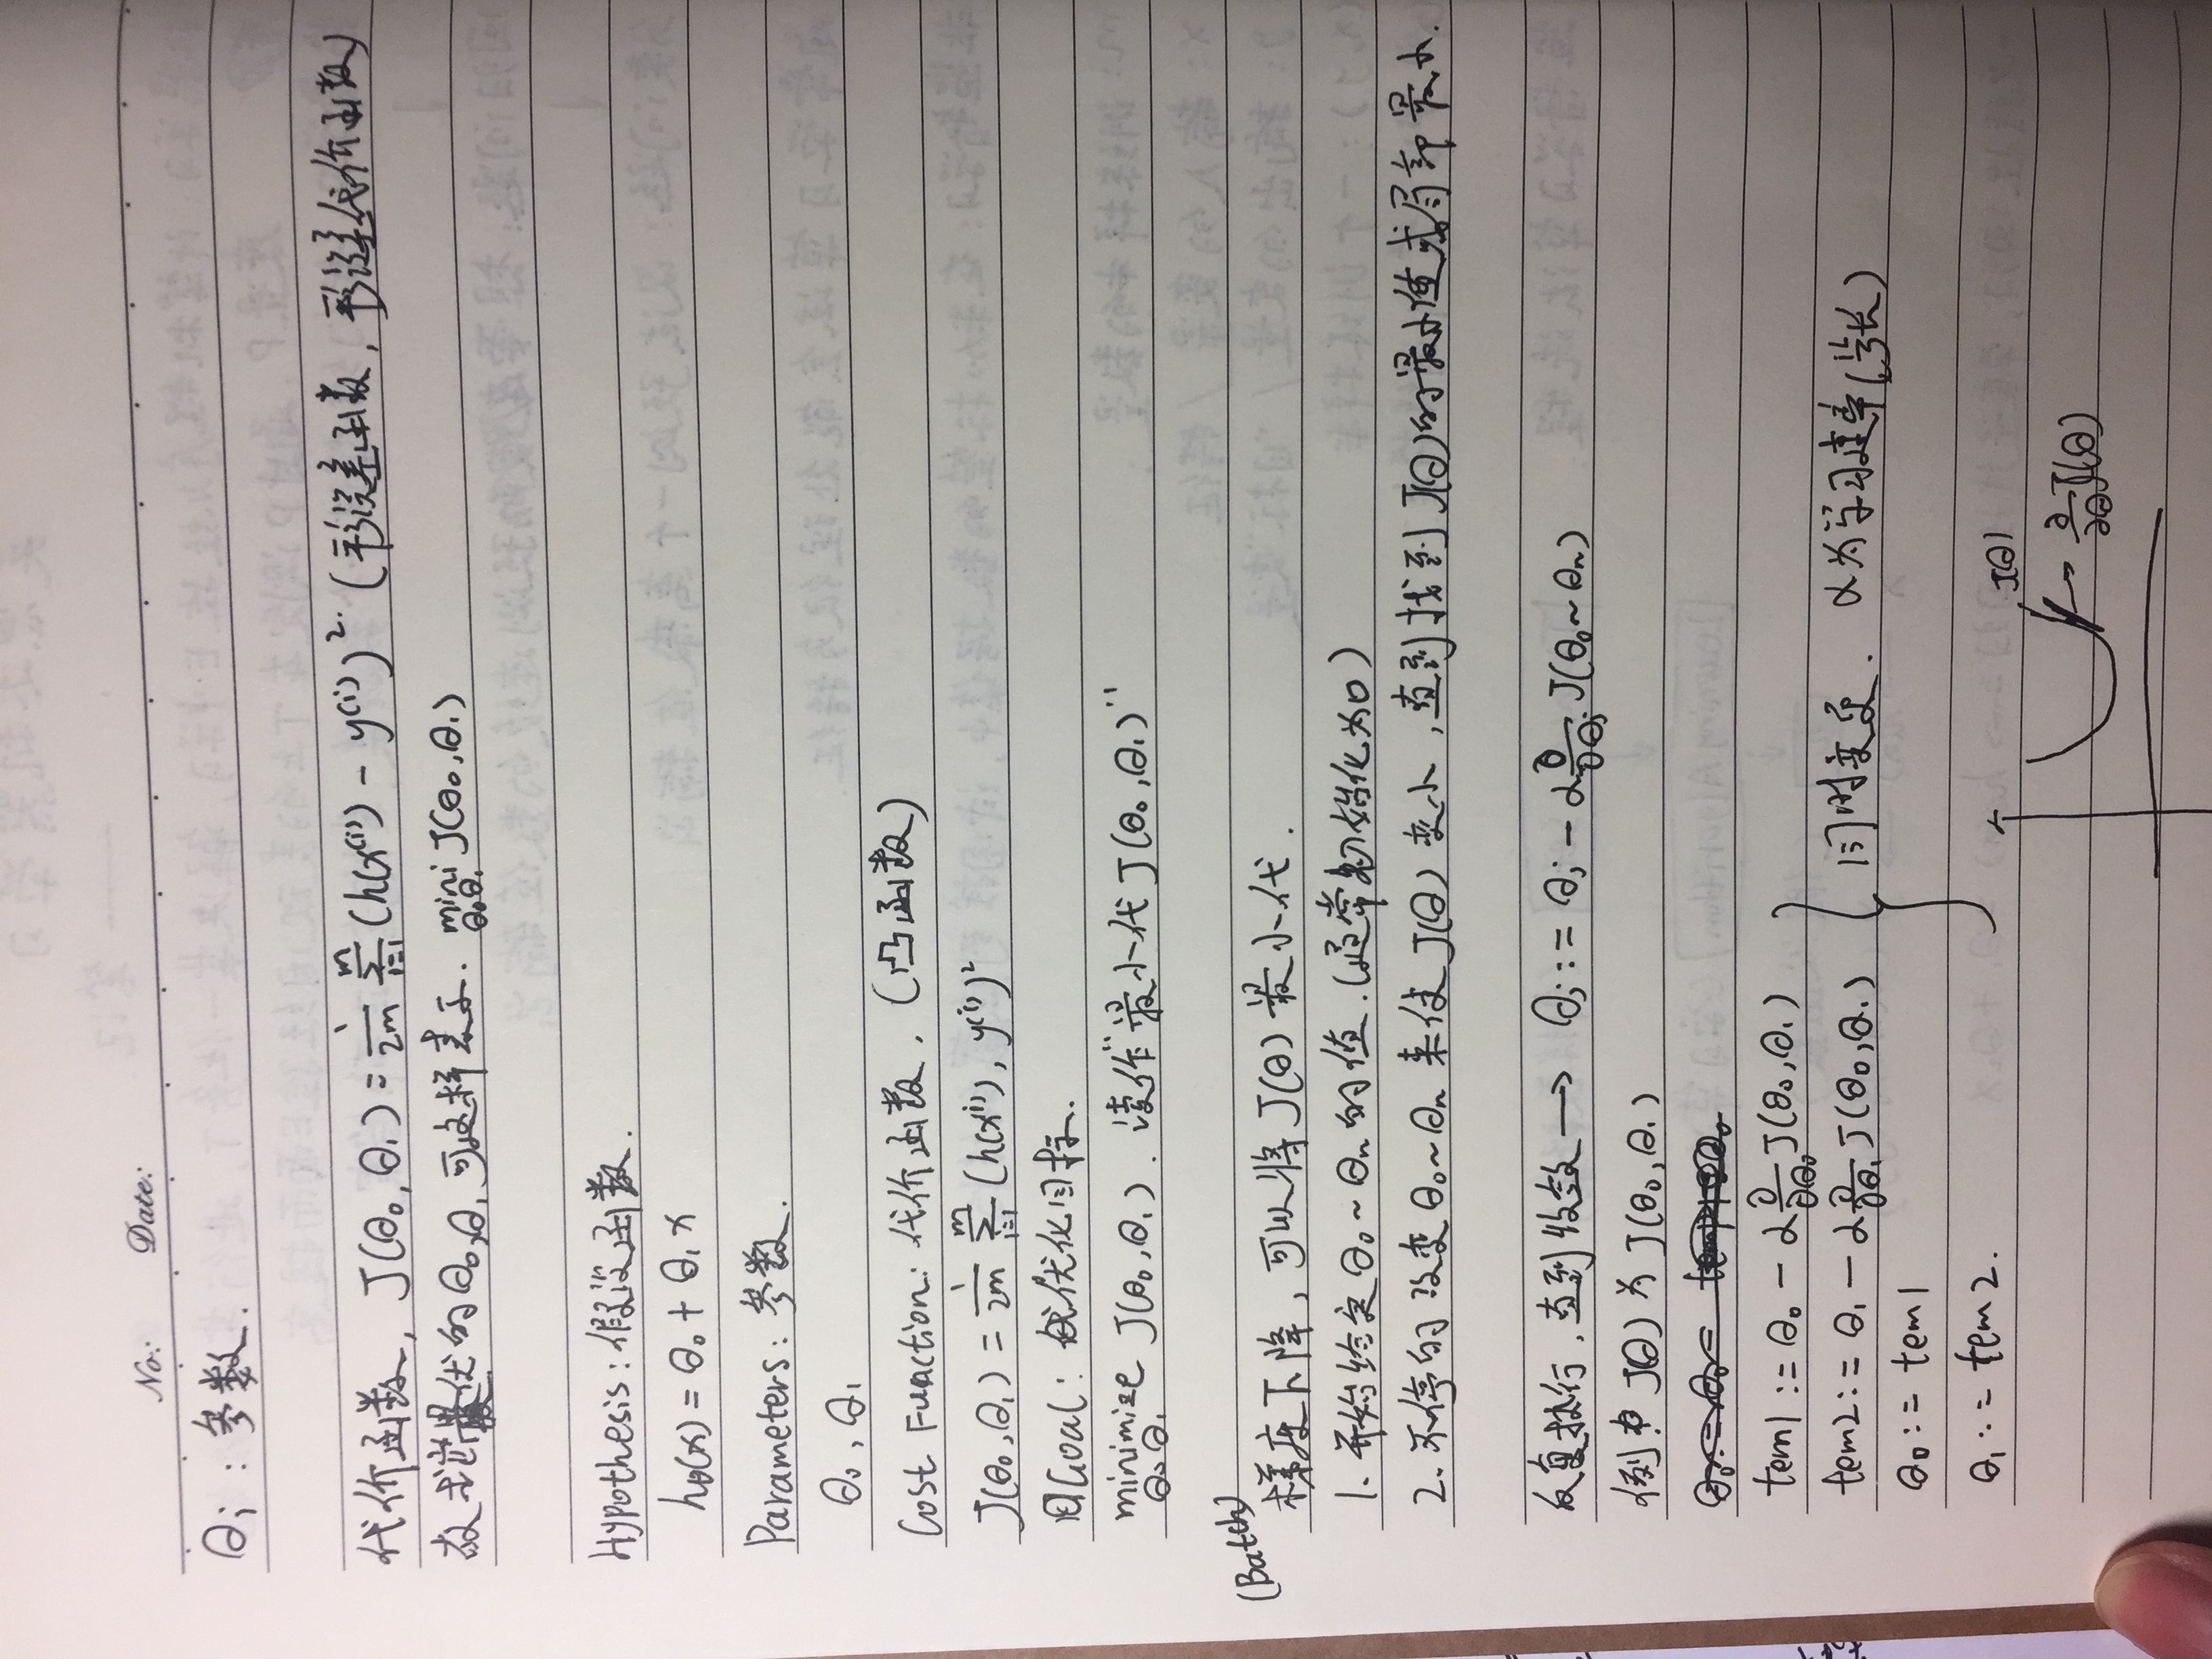 No: Date:
θj : 参数.
代价函数, J(θ₀, θ₁) = 1/2m ∑ᵢ₌₁ᵐ (h(x⁽ⁱ⁾) - y⁽ⁱ⁾)². (误差函数, 误差代价函数)
故求 优的 θ₀,θ₁ 可这样表示. mini θ₀θ₁ J(θ₀, θ₁)
Hypothesis: 假设函数.
hθ(x) = θ₀ + θ₁ x
Parameters: 参数.
θ₀, θ₁
Cost Function: 代价函数. (凸函数)
J(θ₀, θ₁) = 1/2m ∑ᵢ₌₁ᵐ (h(x⁽ⁱ⁾), y⁽ⁱ⁾)²
Goal: 优化目标.
minimize θ₀ θ₁ J(θ₀, θ₁). 读作"最小代 J(θ₀, θ₁)"
(Batch)
梯度下降, 可以将 J(θ) 最小代.
1. 开始给定 θ₀ ~ θₙ 的值. (通常初始化为0)
2. 不停的改变 θ₀ ~ θₙ 来使 J(θ) 变小, 直到找到 J(θ) 的最小值或局部最小.
反复执行, 直到收敛 → θj := θj - α ∂/∂θj J(θ₀ ~ θₙ)
例: J(θ) 为 J(θ₀, θ₁)
tem1 := θ₀ - α ∂/∂θ₀ J(θ₀, θ₁)
tem2 := θ₁ - α ∂/∂θ₁ J(θ₀, θ₁)
同时变更. α为学习速率(步长)
θ₀ := tem1
θ₁ := tem2.
J(θ)
→ ∂/∂θ J(θ)